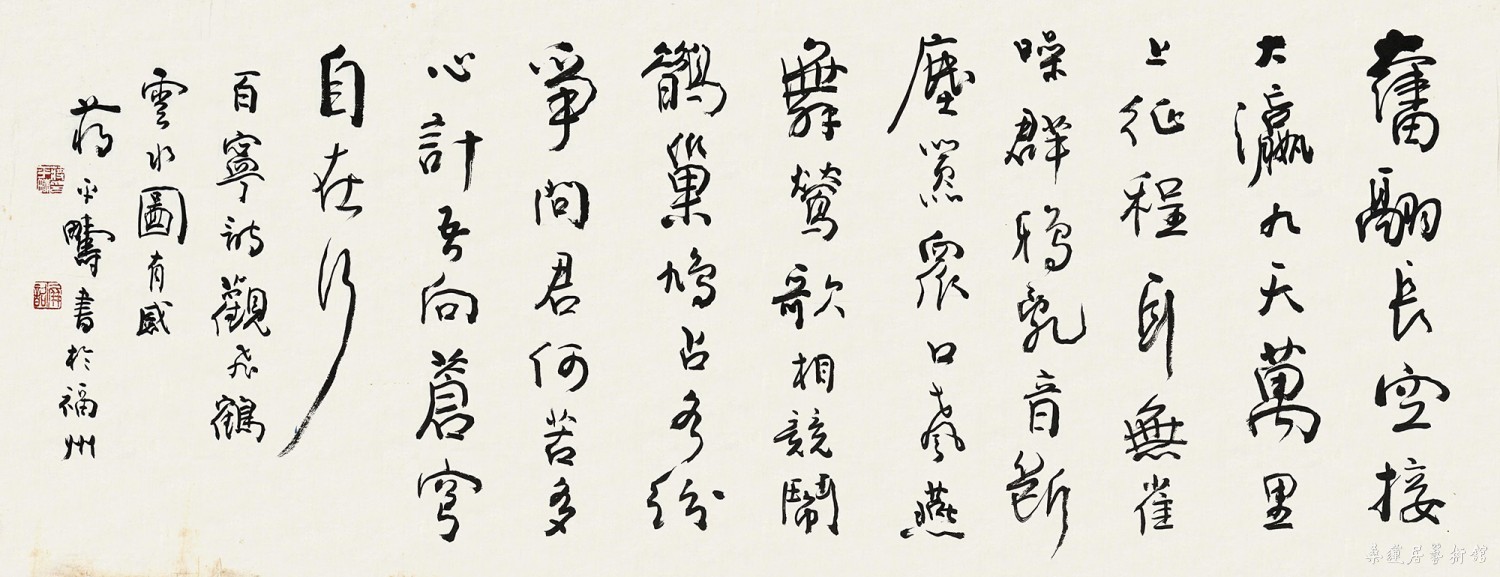 奮翮長空接
大瀛九天萬里
上征程耳無雀
噪群鴉亂音斷
塵囂眾口燕
舞鶯歌相競鬧
鵲巢鳩占紛
爭問君何苦多
心計吾向蒼穹
自在行
百寧詩觀飛鶴
雲水圖有感
蔣平疇書於福州
桑蓮居藝術館